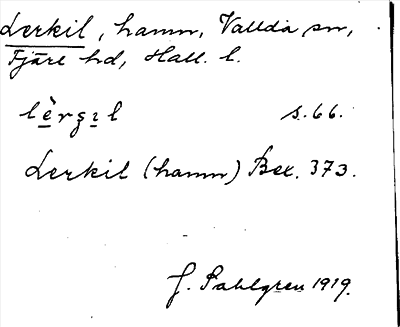 Lerkil, hamn, Vallda sn,
Fjäre hd, Hall. l.
lè̱rşı̱l s. 66.
Lerkil (hamn) Bex. 373.
J. Sahlgren 1919.